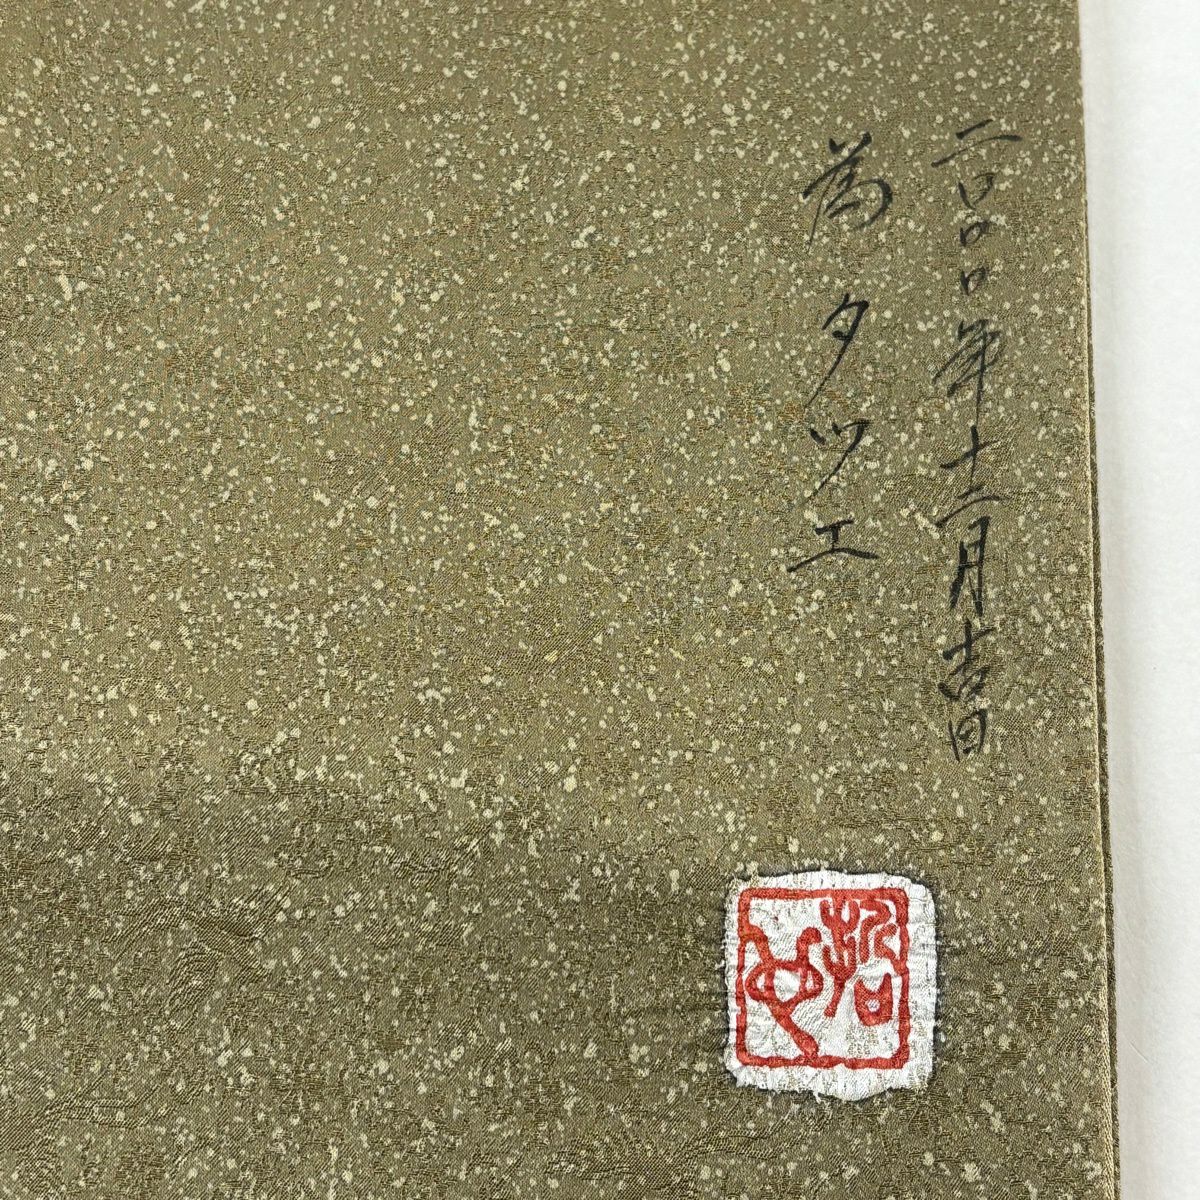 二〇〇〇年十二月吉日
為タツエ